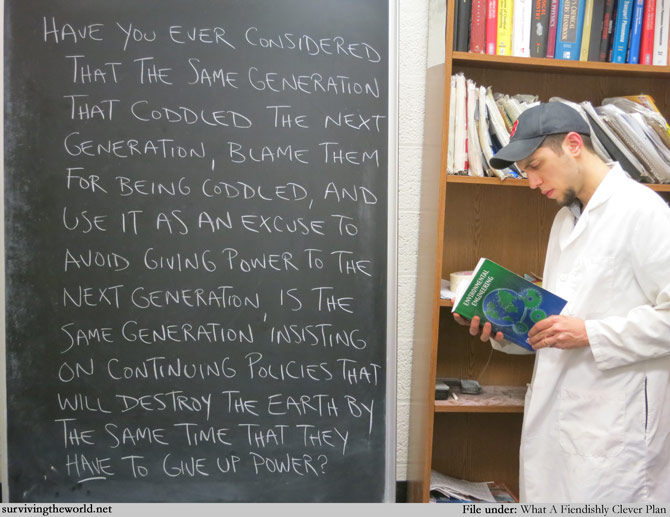 HAVE YOU EVER CONSIDERED
THAT THE SAME GENERATION
THAT CODDLED THE NEXT
GENERATION, BLAME THEM
FOR BEING CODDLED, AND
USE IT AS AN EXCUSE TO
AVOID GIVING POWER TO THE
NEXT GENERATION, IS THE
SAME GENERATION INSISTING
ON CONTINUING POLICIES THAT
WILL DESTROY THE EARTH BY
THE SAME TIME THAT THEY
HAVE TO GIVE UP POWER?
ENVIRONMENTAL
ENGINEERING
survivingtheworld.net
File under: What A Fiendishly Clever Plan